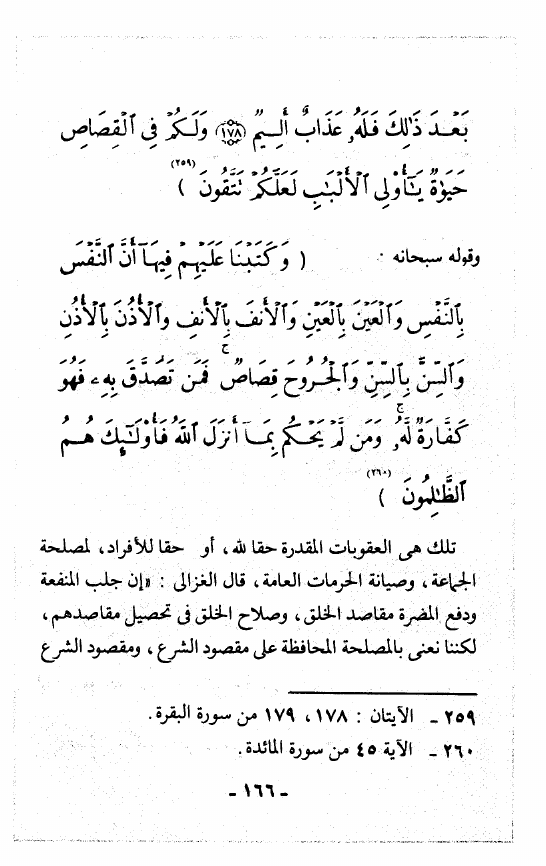 بَعْدَ ذَٰلِكَ فَلَهُۥ عَذَابٌ أَلِيمٌ ﴿١٧٨﴾ وَلَكُمْ فِى ٱلْقِصَاصِ
حَيَوٰةٌ يَـٰٓأُو۟لِى ٱلْأَلْبَـٰبِ لَعَلَّكُمْ تَتَّقُونَ (٢٥٩) )
وقوله سبحانه : ( وَكَتَبْنَا عَلَيْهِمْ فِيهَآ أَنَّ ٱلنَّفْسَ
بِٱلنَّفْسِ وَٱلْعَيْنَ بِٱلْعَيْنِ وَٱلْأَنفَ بِٱلْأَنفِ وَٱلْأُذُنَ بِٱلْأُذُنِ
وَٱلسِّنَّ بِٱلسِّنِّ وَٱلْجُرُوحَ قِصَاصٌ ۚ فَمَن تَصَدَّقَ بِهِۦ فَهُوَ
كَفَّارَةٌ لَّهُۥ ۚ وَمَن لَّمْ يَحْكُم بِمَآ أَنزَلَ ٱللَّهُ فَأُو۟لَـٰٓئِكَ هُمُ
ٱلظَّـٰلِمُونَ (٢٦٠) )
تلك هى العقوبات المقدرة حقا لله، أو حقا للأفراد، لمصلحة
الجماعة، وصيانة الحرمات العامة، قال الغزالى : «إن جلب المنفعة
ودفع المضرة مقاصد الخلق، وصلاح الخلق فى تحصيل مقاصدهم،
لكننا نعنى بالمصلحة المحافظة على مقصود الشرع، ومقصود الشرع
٢٥٩ ـ الآيتان : ١٧٨، ١٧٩ من سورة البقرة.
٢٦٠ ـ الآية ٤٥ من سورة المائدة.
- ١٦٦ -